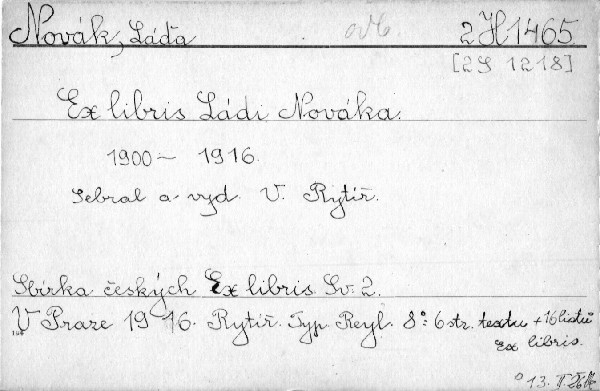 Novák, Láďa 2 H 1465
[2 G 1218]
Ex libris Ládi Nováka.
1900 – 1916.
Sebral a vyd. V. Rytíř.
Sbírka českých Ex libris. Sv. 2.
V Praze 1916. Rytíř. Typ. Reyl. 8°. 6 str. textu + 16 listů
Ex libris.